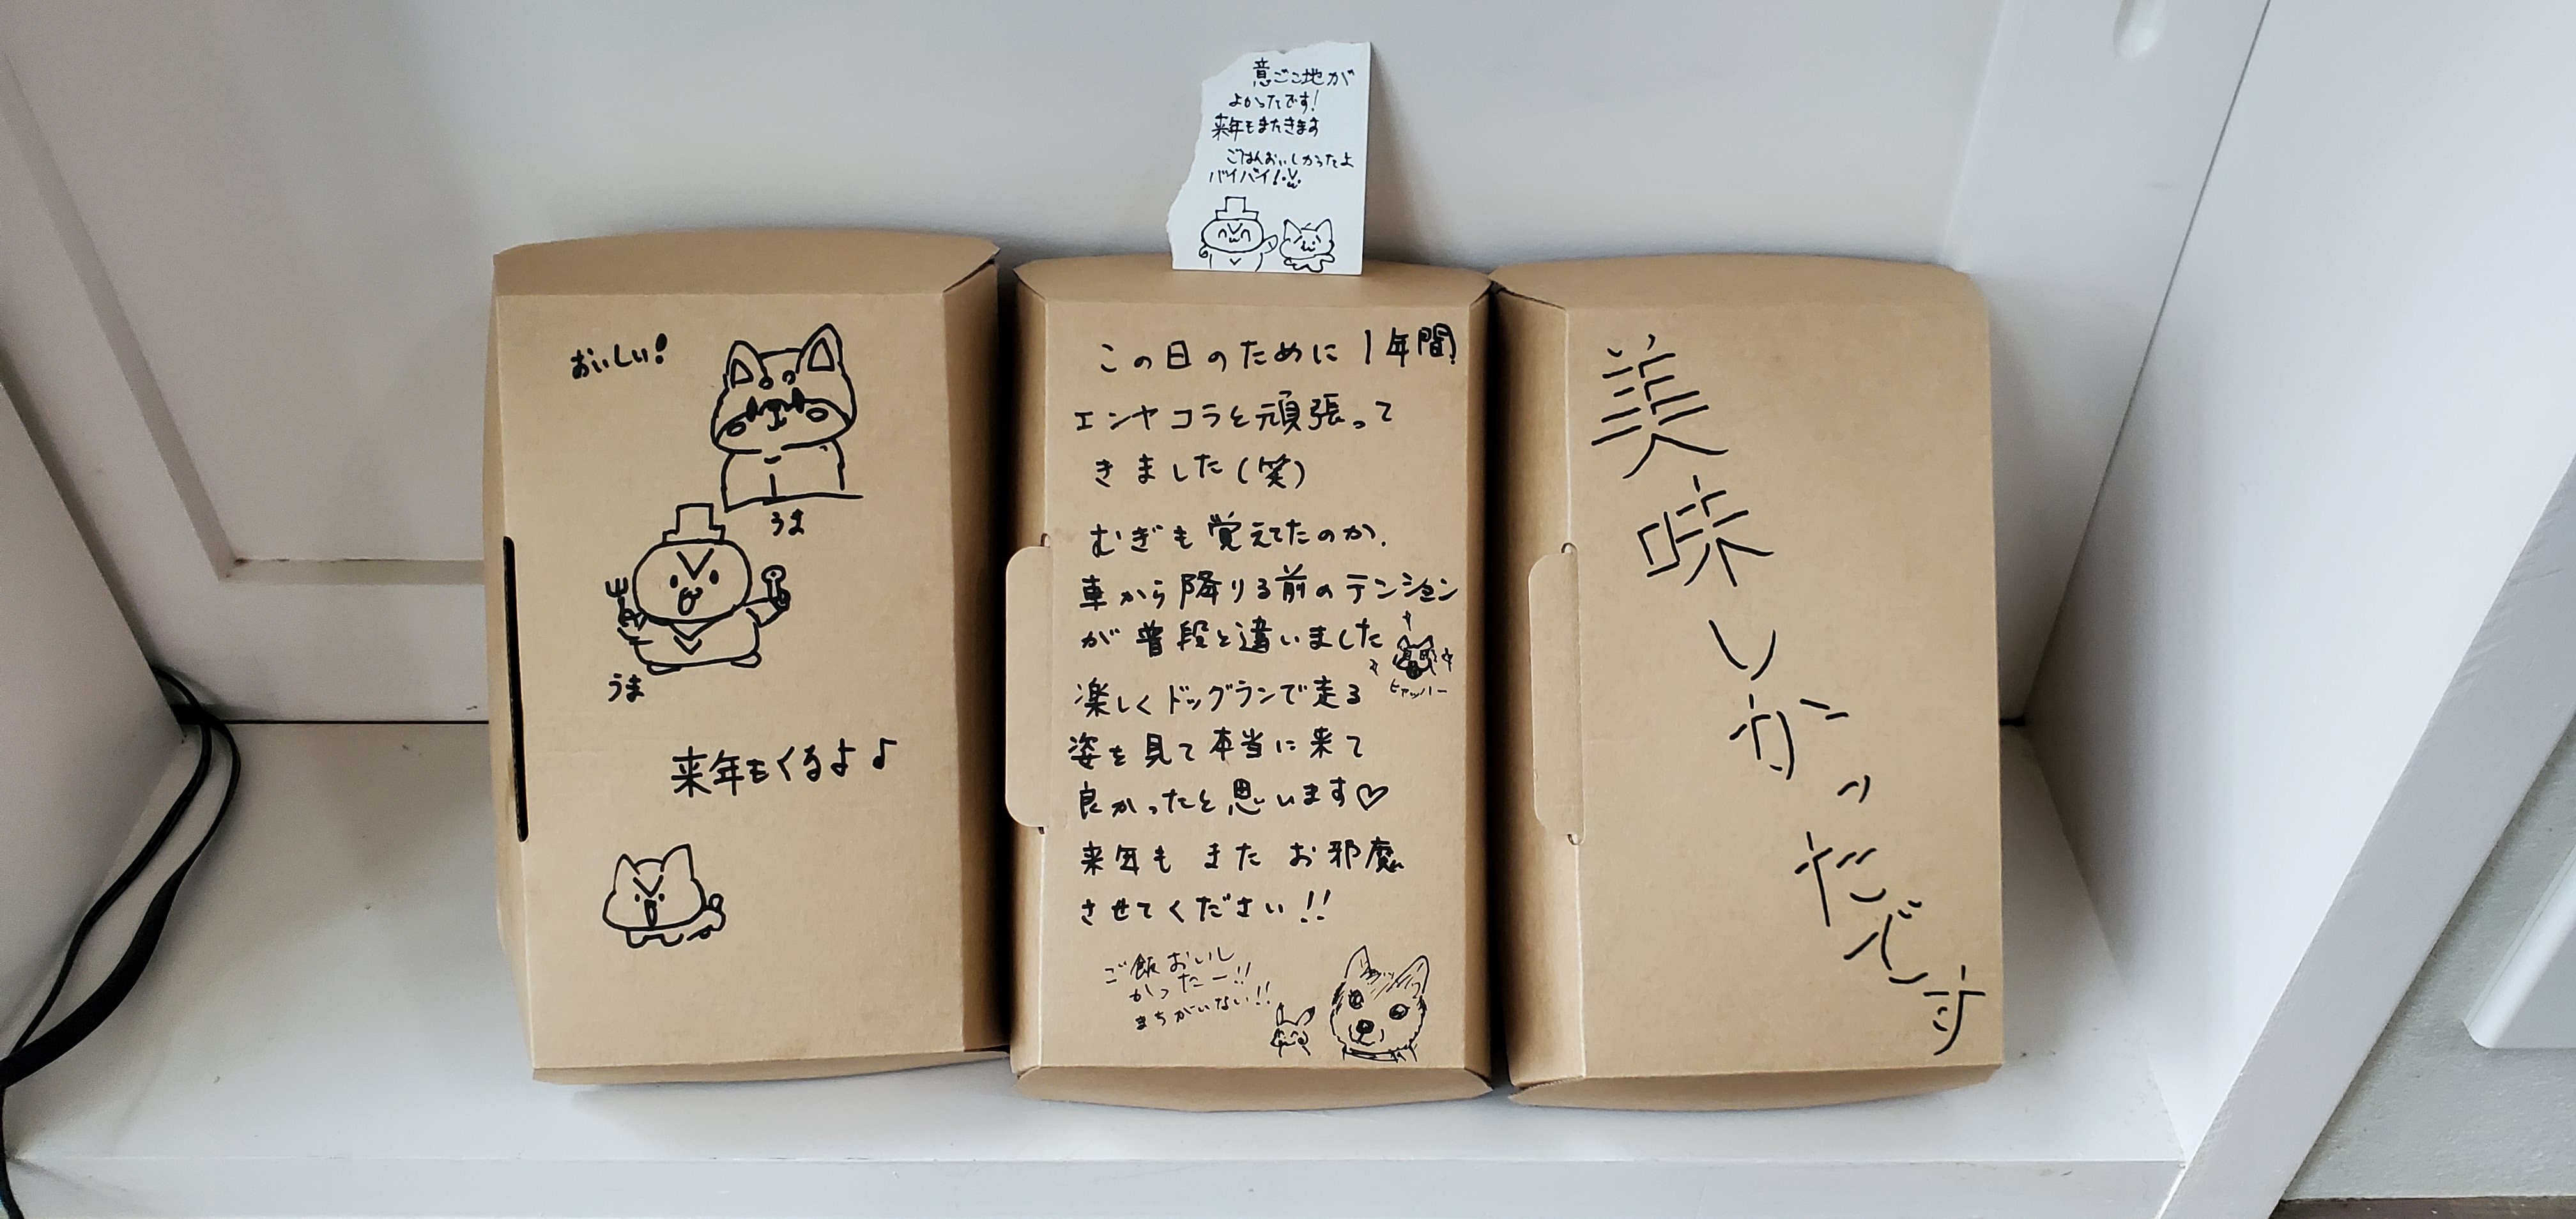 意ごこ地が
よかったです!
来年もまたきます
ごはんおいしかったよ
バイバイ!
おいしい!
うま
うま
来年もくるよ♪
この日のために1年間
エンヤコラと頑張って
きました(笑)
むぎも覚えてたのか、
車から降りる前のテンション
が普段と違いました
ヒャッハー
楽しくドッグランで走る
姿を見て本当に来て
良かったと思います♡
来年も また お邪魔
させてください!!
ご飯おいし
かったー!!
まちがいない!!
美味しかったです